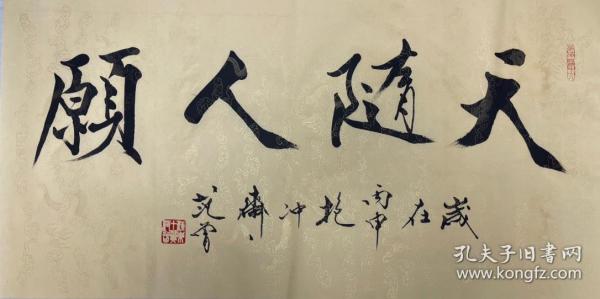 天隨人願
歲在丙申抱冲齋
范曾
孔夫子旧书网
www.kongfz.com